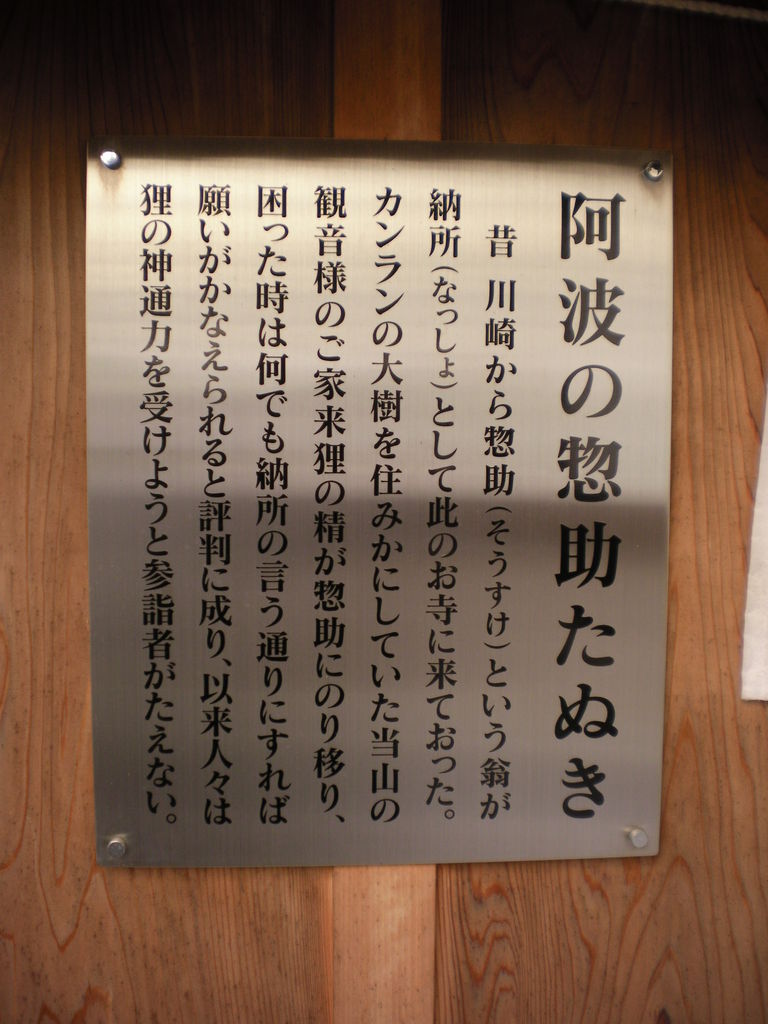 阿波の惣助たぬき
昔 川崎から惣助(そうすけ)という翁が
納所(なっしょ)として此のお寺に来ておった。
カンランの大樹を住みかにしていた当山の
観音様のご家来狸の精が惣助にのり移り、
困った時は何でも納所の言う通りにすれば
願いがかなえられると評判に成り、以来人々は
狸の神通力を受けようと参詣者がたえない。